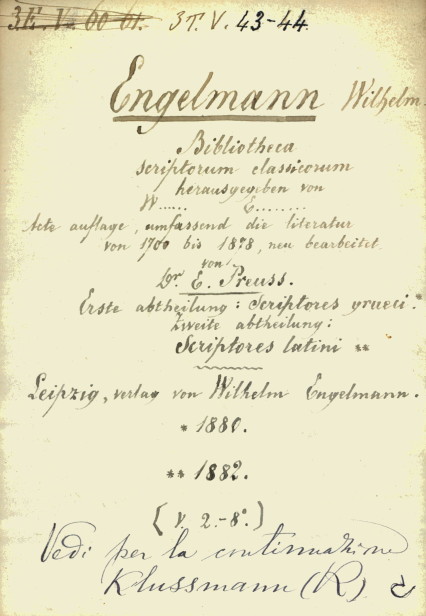 3.E. V. 60 61. 3T. V. 43-44.
Engelmann Wilhelm.
Bibliotheca
scriptorum classicorum
herausgegeben von
W...... E........
8cte auflage, umfassend die literatur
von 1700 bis 1878, neu bearbeitet
von
Dr. E. Preuss.
Erste abtheilung: Scriptores graeci. *
Zweite abtheilung:
Scriptores latini **
Leipzig, verlag von Wilhelm Engelmann.
* 1880.
** 1882.
(v. 2.-8°.)
Vedi per la continuazione
Klussmann (R.)